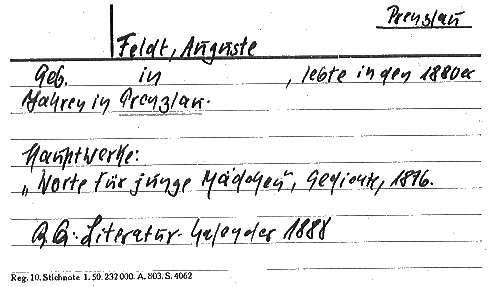 Prenzlau
Feldt, Auguste
Geb. in , lebte in den 1880er
Jahren in Prenzlau.
Hauptwerke:
„Worte für junge Mädchen", Gedichte, 1876.
Literatur-Kalender 1888
Reg. 10. Stichnote 1. 50. 232 000. A. 803. S. 4062